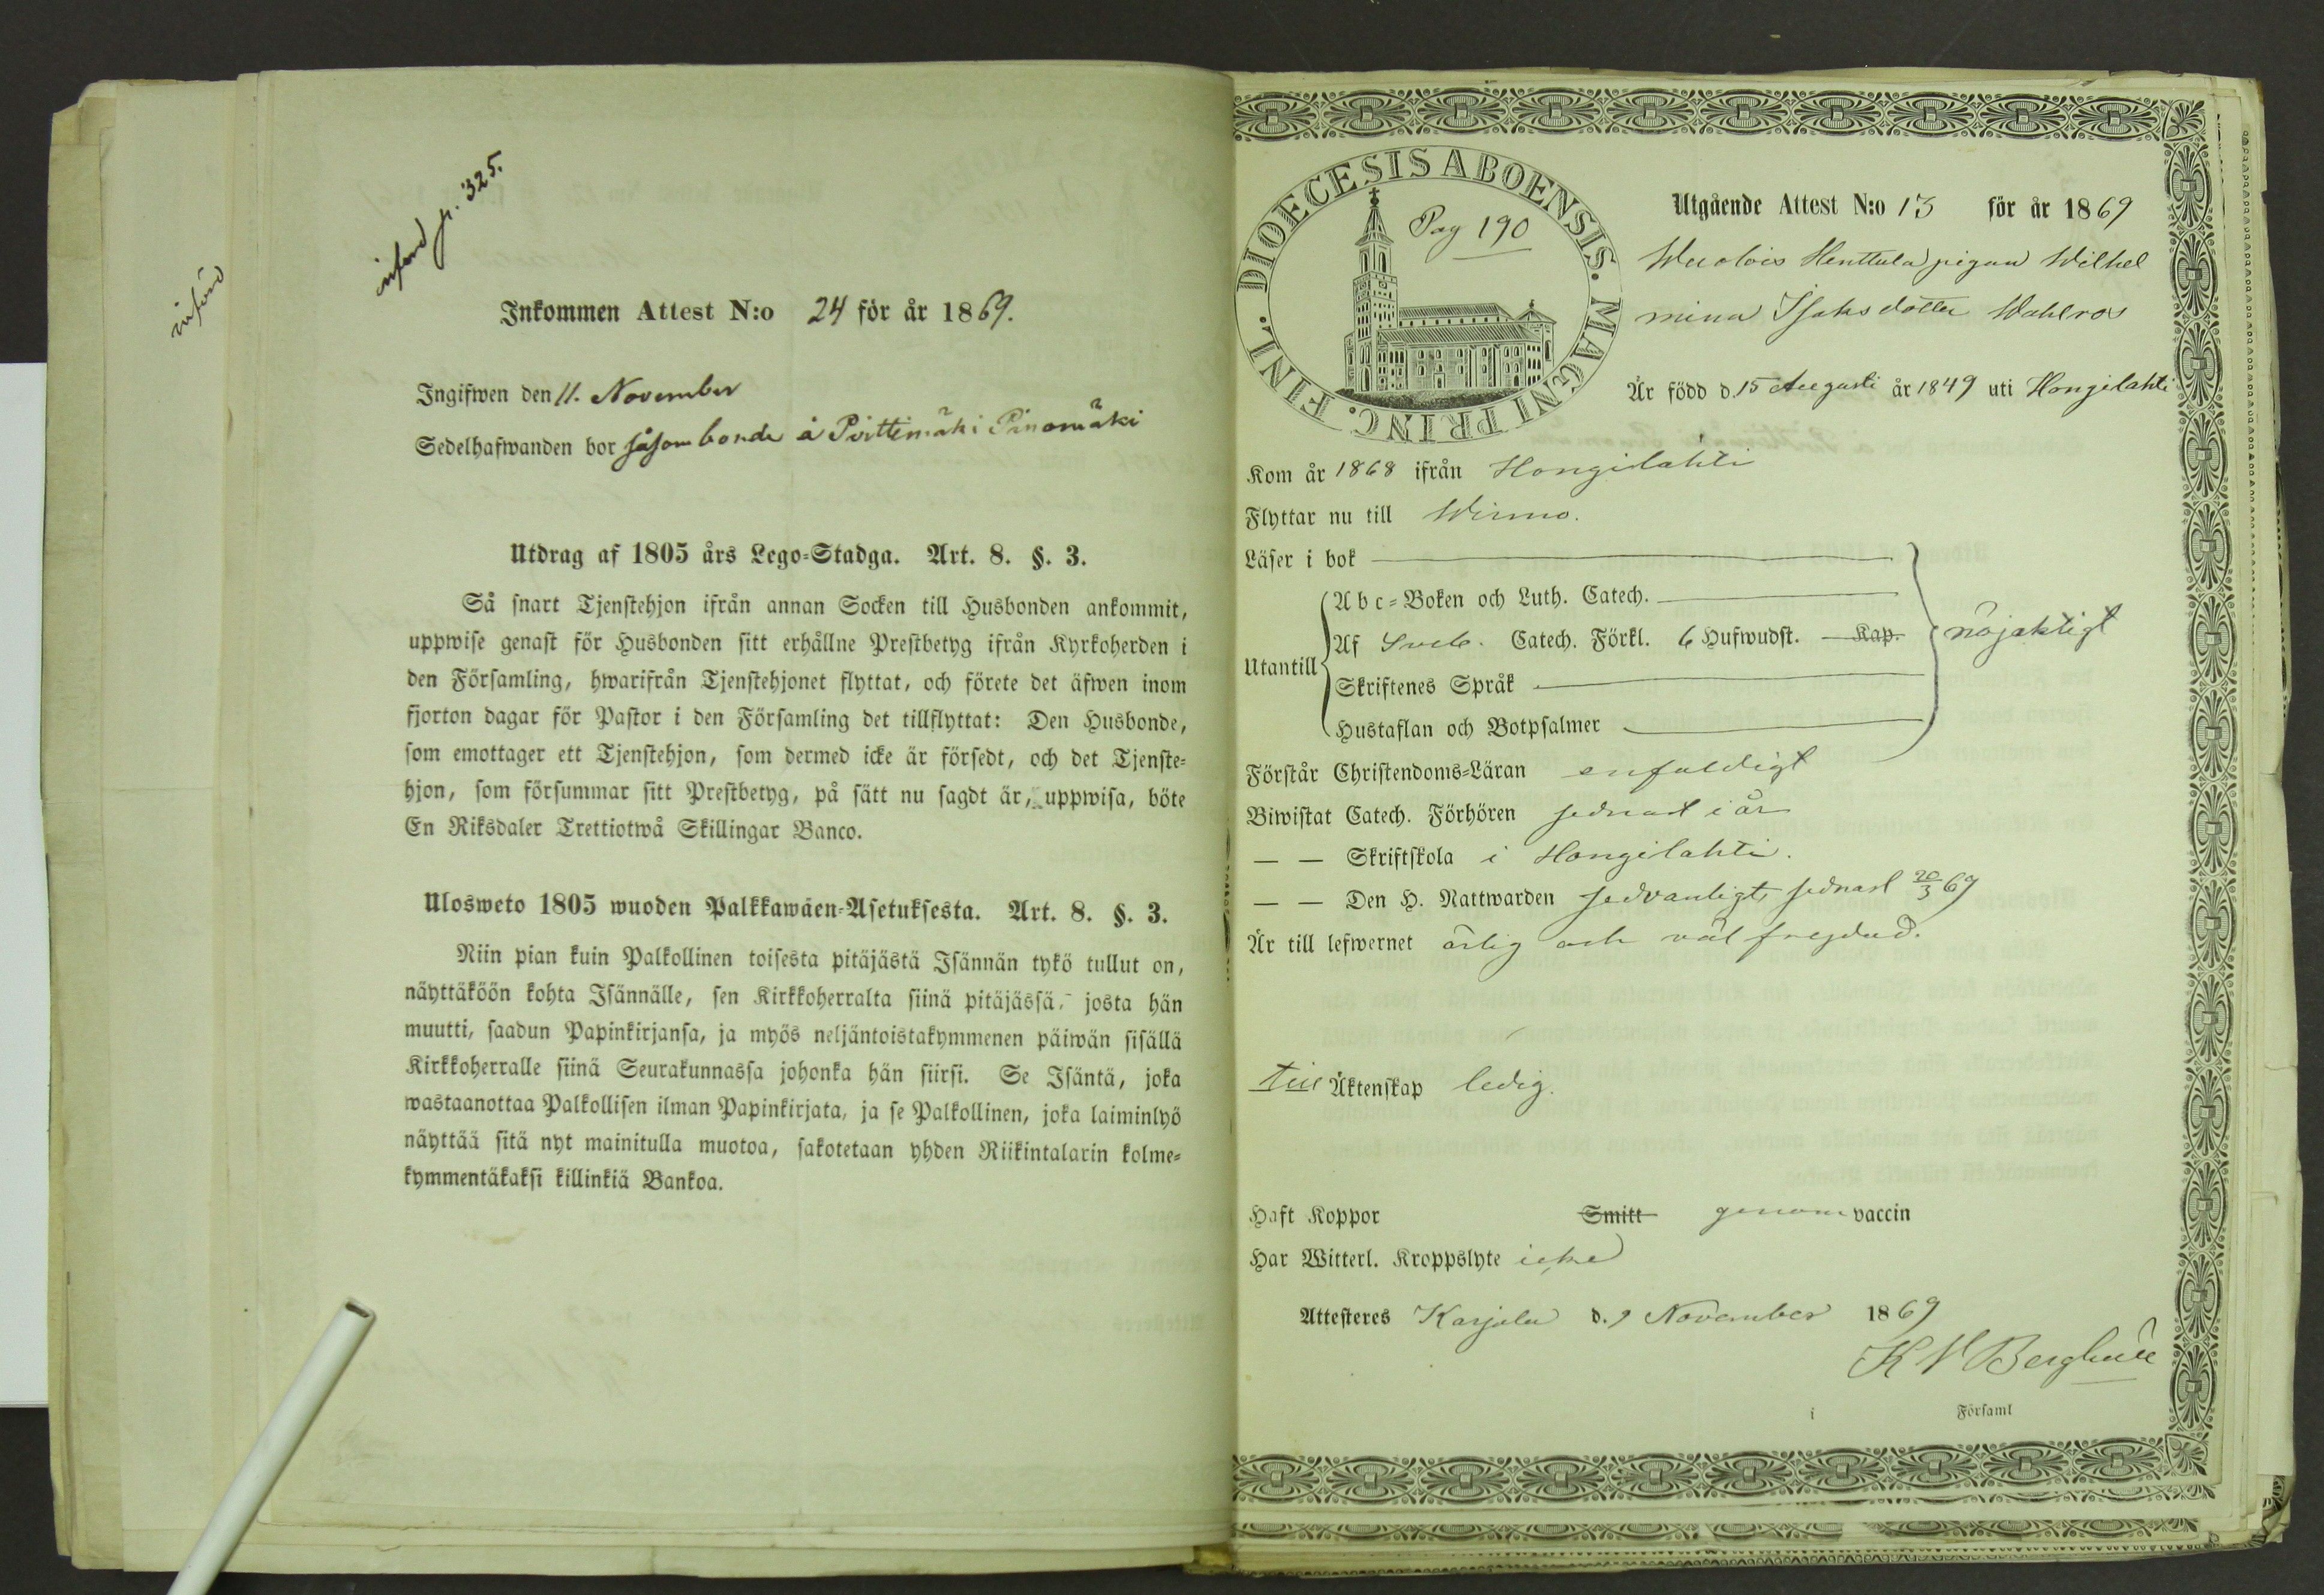 införd
införd p. 325.
Inkommen Attest N:o 24 för år 1869.
Ingifwen den 11. November
Sedelhafwanden bor såsom bonde å Pirttimäki Pinomäki
Utdrag af 1805 års Lego-Stadga. Art. 8. §. 3.
Så snart Tjenstehjon ifrån annan Socken till Husbonden ankommit,
uppwise genast för Husbonden sitt erhållne Prestbetyg ifrån Kyrkoherden i
den Församling, hwarifrån Tjenstehjonet flyttat, och förete det äfwen inom
fjorton dagar för Pastor i den Församling det tillflyttat: Den Husbonde,
som emottager ett Tjenstehjon, som dermed icke är försedt, och det Tjenste-
hjon, som försummar sitt Prestbetyg, på sätt nu sagdt är, uppwisa, böte
En Riksdaler Trettiotwå Skillingar Banco.
Ulosweto 1805 wuoden Palkkawäen-Asetuksesta. Art. 8. §. 3.
Niin pian kuin Palkollinen toisesta pitäjästä Isännän tykö tullut on,
näyttäköön kohta Isännälle, sen Kirkkoherralta siinä pitäjässä, josta hän
muutti, saadun Papinkirjansa, ja myös neljäntoistakymmenen päiwän sisällä
Kirkkoherralle siinä Seurakunnassa johonka hän siirsi. Se Isäntä, joka
wastaanottaa Palkollisen ilman Papinkirjata, ja se Palkollinen, joka laiminlyö
näyttää sitä nyt mainitulla muotoa, sakotetaan yhden Riikintalarin kolme-
kymmentäkaksi killinkiä Bankoa.
FINL. DIOECESIS ABOENSIS. MAGNI PRINC.
Pag 190
Utgående Attest N:o 13 för år 1869
Henttula pigan Wilhel
mina Isaksdotter Wahlros
Är född d. 15 Augusti år 1849 uti Hongilahti
Kom år 1868 ifrån Hongilahti
Flyttar nu till Wirmo.
Läser i bok
Abc-Boken och Luth. Catech.
Utantill Af Sveb. Catech. Förkl. 6 Hufwudst. Kap. nöjaktigt
Skriftenes Språk
Hustaflan och Botpsalmer
Förstår Christendoms-Läran enfaldigt
Biwistat Catech. Förhören sednast i år
— — Skriftskola i Hongilahti.
— — Den H. Nattwarden sedvanligt, sednast 20/3 69
Är till lefwernet ärlig och väl frejdad.
till Äktenskap ledig.
Haft Koppor Smitt genom vaccin
Har Witterl. Kroppslyte icke
Attesteres Karjala d. 9 November 1869
K V Berghäll
i Församl